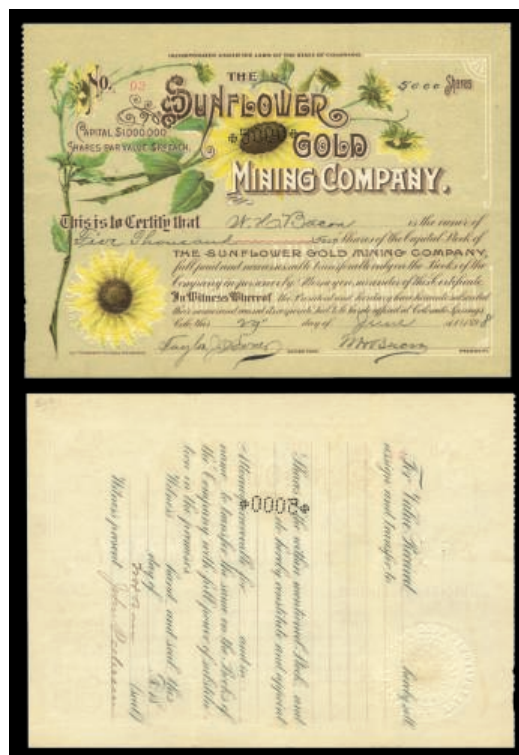 INCORPORATED UNDER THE LAWS OF THE STATE OF COLORADO.
No. 93
THE
5000 Shares
SUNFLOWER
CAPITAL $1,000,000
*5000*
GOLD
SHARES PAR VALUE $1 EACH.
MINING COMPANY.
This is to Certify that W. H. Bacon is the owner of
Five Thousand Shares of the Capital Stock of
THE SUNFLOWER GOLD MINING COMPANY,
full paid and nonassessable transferable only on the Books of the
Company in person or by Attorney on surrender of this Certificate.
In Witness Whereof the President and Secretary have hereunto subscribed
their names and caused the corporate Seal to be hereto affixed at Colorado Springs,
Colo. this 29" day of June 8
SECRETARY
W H Bacon
PRESIDENT.
For Value Received hereby sell
assign and transfer to
Shares of the within mentioned Stock and
do hereby constitute and appoint
*5000*
Attorney irrevocable for and in
name to transfer the same on the Books of
the Company with full power of substitu-
tion in the premises.
Witness hand and seal this
day of 18
(Seal)
Witness present